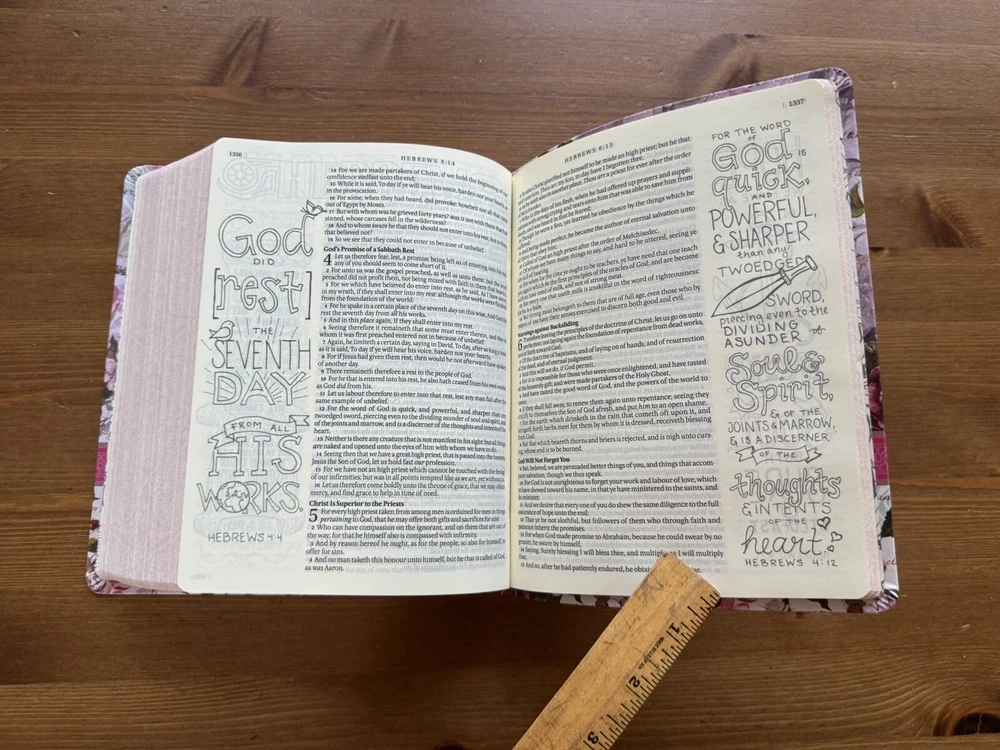 1336
HEBREWS 3:14
God
DID
[rest]
THE
SEVENTH
DAY
FROM ALL
HIS
WORKS.
HEBREWS 4:4
14 For we are made partakers of Christ, if we hold the beginning of
confidence stedfast unto the end;
15 While it is said, To day if ye will hear his voice, harden not your hearts,
16 For some, when they had heard, did provoke: howbeit not all that
out of Egypt by Moses.
17 But with whom was he grieved forty years? was it not with them that
sinned, whose carcases fell in the wilderness?
18 And to whom sware he that they should not enter into his rest, but to
that believed not?
19 So we see that they could not enter in because of unbelief.
God's Promise of a Sabbath Rest
4 Let us therefore fear, lest, a promise being left us of entering into his
any of you should seem to come short of it.
2 For unto us was the gospel preached, as well as unto them: but the
preached did not profit them, not being mixed with faith in them that
3 For we which have believed do enter into rest, as he said, As I have
in my wrath, if they shall enter into my rest: although the works were
from the foundation of the world.
4 For he spake in a certain place of the seventh day on this wise, And God
rest the seventh day from all his works.
5 And in this place again, If they shall enter into my rest.
6 Seeing therefore it remaineth that some must enter therein, and they
whom it was first preached entered not in because of unbelief:
7 Again, he limiteth a certain day, saying in David, To day, after so long a
as it is said, To day if ye will hear his voice, harden not your hearts.
8 For if Jesus had given them rest, then would he not afterward have spoken
of another day.
9 There remaineth therefore a rest to the people of God.
10 For he that is entered into his rest, he also hath ceased from his own
as God did from his.
11 Let us labour therefore to enter into that rest, lest any man fall after the
same example of unbelief.
12 For the word of God is quick, and powerful, and sharper than any
twoedged sword, piercing even to the dividing asunder of soul and spirit, and
of the joints and marrow, and is a discerner of the thoughts and intents of the
heart.
13 Neither is there any creature that is not manifest in his sight: but all things
are naked and opened unto the eyes of him with whom we have to do.
14 Seeing then that we have a great high priest, that is passed into the heavens,
Jesus the Son of God, let us hold fast our profession.
15 For we have not an high priest which cannot be touched with the feeling
of our infirmities; but was in all points tempted like as we are, yet without sin.
16 Let us therefore come boldly unto the throne of grace, that we may obtain
mercy, and find grace to help in time of need.
Christ Is Superior to the Priests
5 For every high priest taken from among men is ordained for men in things
pertaining to God, that he may offer both gifts and sacrifices for sins:
2 Who can have compassion on the ignorant, and on them that are out of
the way; for that he himself also is compassed with infirmity.
3 And by reason hereof he ought, as for the people, so also for himself, to
offer for sins.
4 And no man taketh this honour unto himself, but he that is called of God,
as was Aaron.
HEBREWS 6:15
1337
Christ glorified not himself to be made an high priest; but he that
Thou art my Son, to day have I begotten thee.
also in another place, Thou art a priest for ever after the order
in the days of his flesh, when he had offered up prayers and suppli-
strong crying and tears unto him that was able to save him from
was heard in that he feared;
he were a Son, yet learned he obedience by the things which he
being made perfect, he became the author of eternal salvation unto
that obey him;
Called of God an high priest after the order of Melchisedec.
Of whom we have many things to say, and hard to be uttered, seeing ye
of hearing.
when for the time ye ought to be teachers, ye have need that one teach
again which be the first principles of the oracles of God; and are become
as have need of milk, and not of strong meat.
every one that useth milk is unskilful in the word of righteousness:
is a babe.
strong meat belongeth to them that are of full age, even those who by
of use have their senses exercised to discern both good and evil.
Warnings against Backsliding
6 Therefore leaving the principles of the doctrine of Christ, let us go on unto
perfection; not laying again the foundation of repentance from dead works,
of faith toward God,
2 Of the doctrine of baptisms, and of laying on of hands, and of resurrection
of the dead, and of eternal judgment.
3 And this will we do, if God permit.
4 For it is impossible for those who were once enlightened, and have tasted
of the heavenly gift, and were made partakers of the Holy Ghost,
5 And have tasted the good word of God, and the powers of the world to
come,
6 If they shall fall away, to renew them again unto repentance; seeing they
crucify to themselves the Son of God afresh, and put him to an open shame.
7 For the earth which drinketh in the rain that cometh oft upon it, and
bringeth forth herbs meet for them by whom it is dressed, receiveth blessing
from God:
8 But that which beareth thorns and briers is rejected, and is nigh unto curs-
ing; whose end is to be burned.
God Will Not Forget You
9 But, beloved, we are persuaded better things of you, and things that accom-
pany salvation, though we thus speak.
10 For God is not unrighteous to forget your work and labour of love, which
ye have shewed toward his name, in that ye have ministered to the saints, and
do minister.
11 And we desire that every one of you do shew the same diligence to the full
assurance of hope unto the end:
12 That ye be not slothful, but followers of them who through faith and
patience inherit the promises.
13 For when God made promise to Abraham, because he could swear by no
greater, he sware by himself,
14 Saying, Surely blessing I will bless thee, and multiplying I will multiply
thee.
15 And so, after he had patiently endured, he obtained
FOR THE WORD
OF
God IS
quick,
AND
POWERFUL,
& SHARPER
than any
TWOEDGED
SWORD,
piercing even to the
DIVIDING
ASUNDER of
Soul &
Spirit,
& OF THE
JOINTS & MARROW,
& IS A DISCERNER
OF THE
thoughts
& INTENTS
OF THE
heart.
HEBREWS 4:12
1
2
3